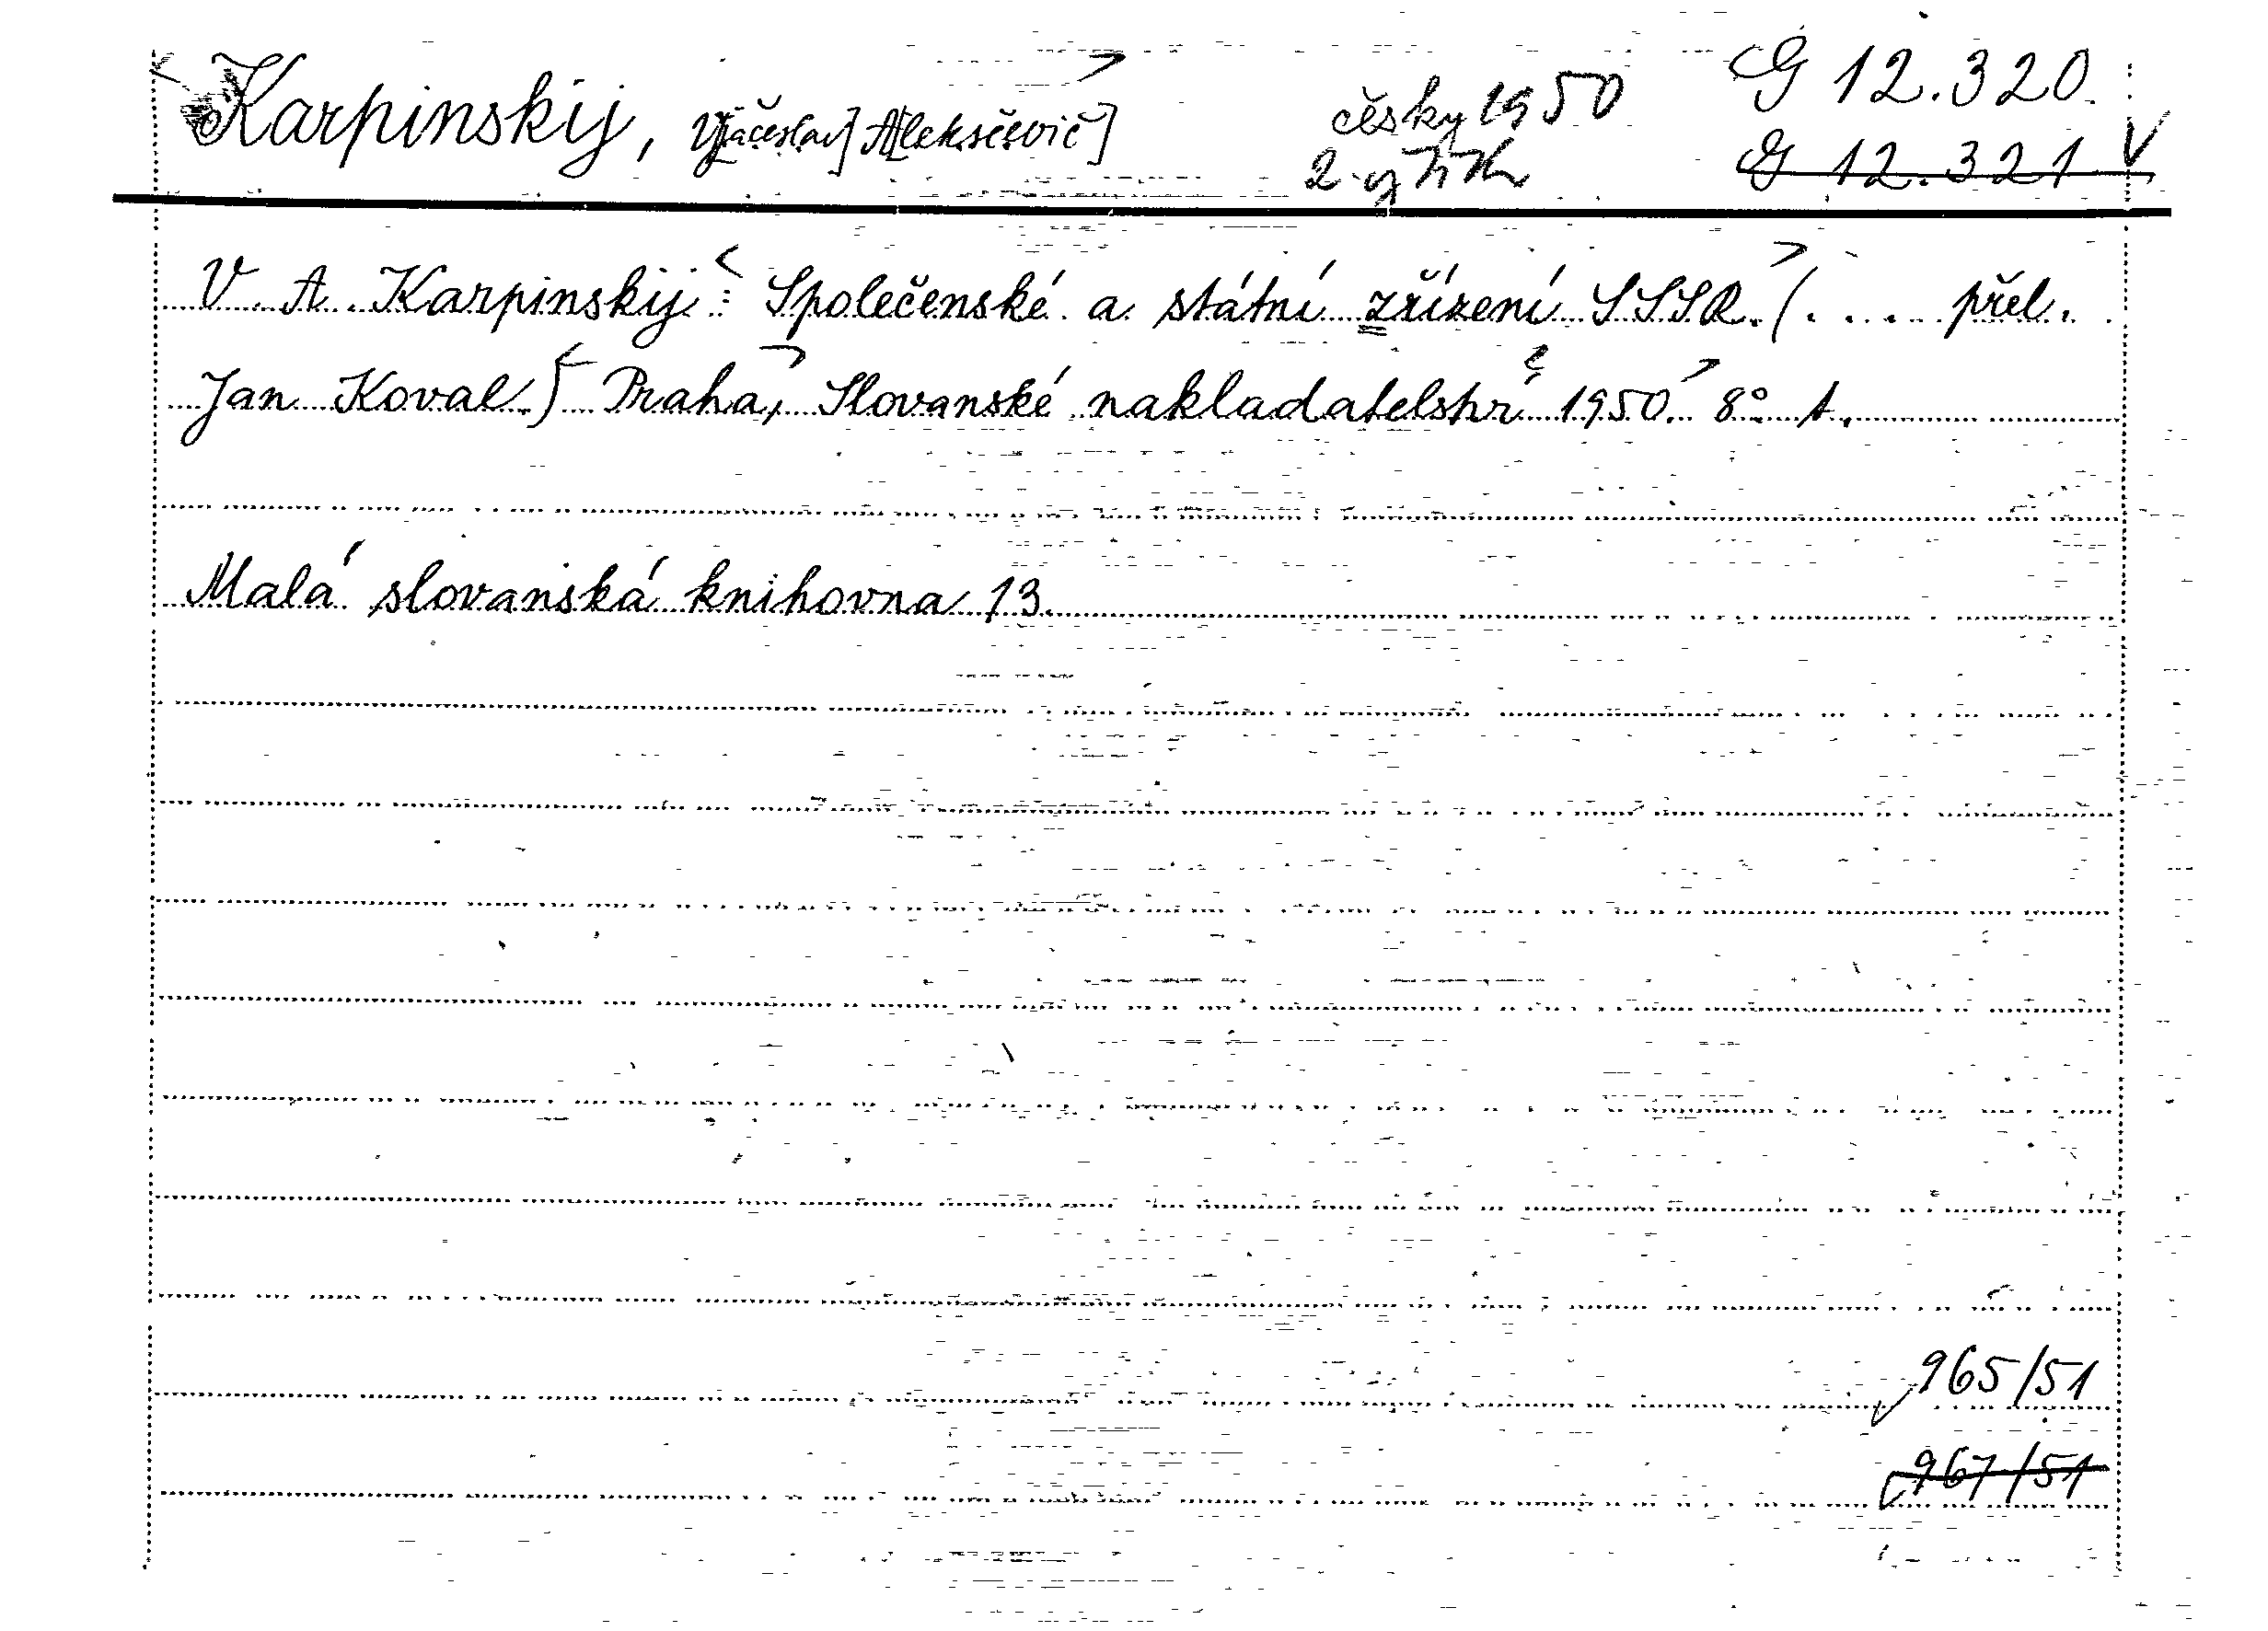 Karpinskij, V[jačeslav] A[leksěevič] česky 1950 G 12.320.
2. výtisk G 12.321 V
V. A. Karpinskij: Společenské a státní zřízení SSSR. (. . . . přel.
Jan Koval.) Praha, Slovanské nakladatelství 1950. 8° 1.
Malá slovanská knihovna 13.
965/51
967/51